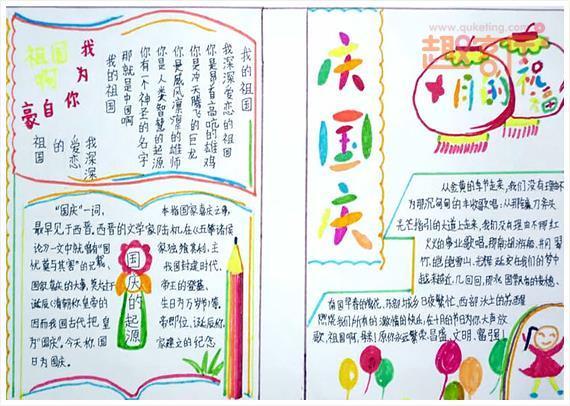 我的祖国
我深深爱恋的祖国
你是昂首高吭的雄鸡
你是冲天腾飞的巨龙
你是威风凛凛的雄师
你是人类智慧的起源
你有一个神圣的名字
那就是中国啊
我的祖国
祖国啊
我为你自豪
我深深爱恋的祖国
"国庆"一词,
本指国家喜庆之事,
最早见于西晋,西晋的文学家陆机在《五等诸侯
论》一文中就曾有"国
优莫与其害"的记载,
国庆的起源
我国封建时代,
帝王的登基、
诞辰(清朝称皇帝的
生日为万岁节)等
因而我国古代把皇
帝即位、诞辰称
为"国庆"。今天称国
家建立的纪念
日为国庆。
庆国庆
十月的祝福
www.quketing.com
从金黄的季节走来,我们没有理由不
为那沉甸甸的丰收歌唱;从那镰刀斧头
光芒指引的大道上走来,我们没有理由不为红
火火的事业歌唱,
燃烧我们所有的激情的快乐,在十月的节日为你大声放
歌,祖国啊,
繁荣、昌盛、文明、富强!